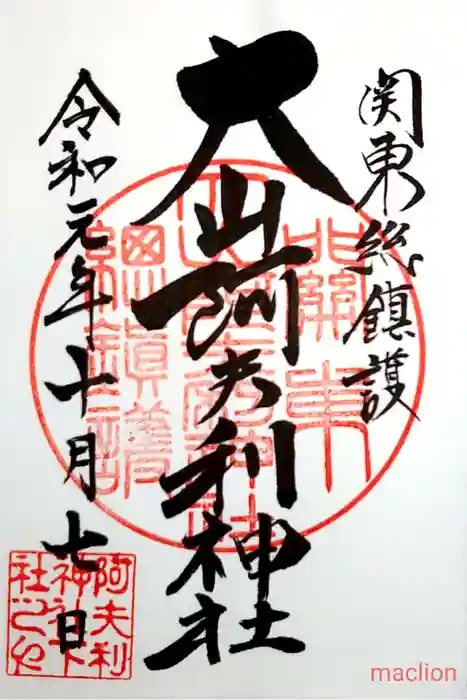 関東総鎮護
大山阿夫利神社
令和元年十月七日
關東
總鎮護
阿夫利
神社下
社之印
maclion